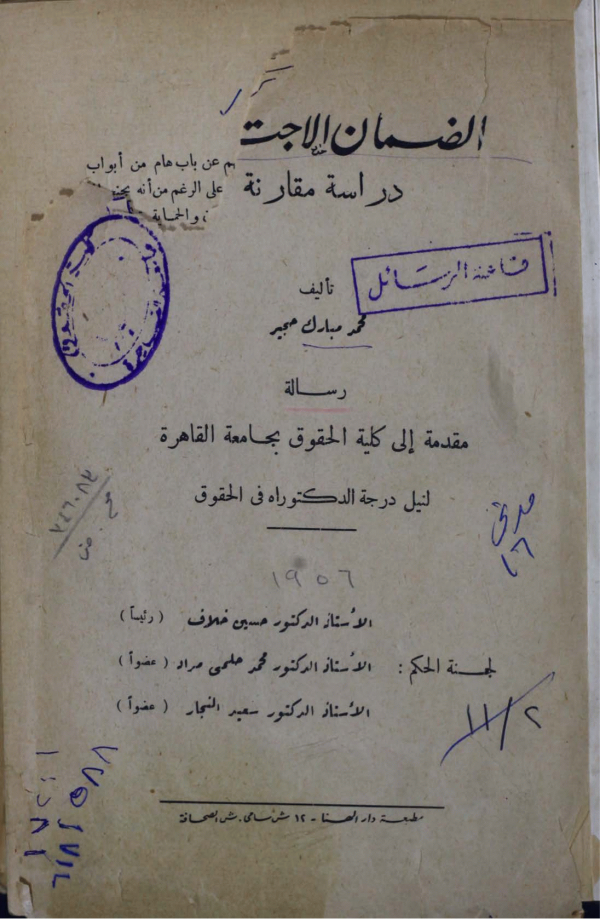 الضمان الاجت
هم عن باب هام من أبواب
دراسة مقارنة
على الرغم من أنه
والحماية
قاعة الرسائل
تأليف
محمد مبارك حجير
رسالة
مقدمة إلى كلية الحقوق بجامعة القاهرة
لنيل درجة الدكتوراه فى الحقوق
١٩٥٦
الأستاذ الدكتور حسين خلاف (رئيساً)
لجنة الحكم : الأستاذ الدكتور محمد حلمى مراد (عضواً)
الأستاذ الدكتور سعيد النجار (عضواً)
مدنى
١٦
١١/٢
مطبعة دار الهنا - ١٢ ش سامى . ش الصحافة